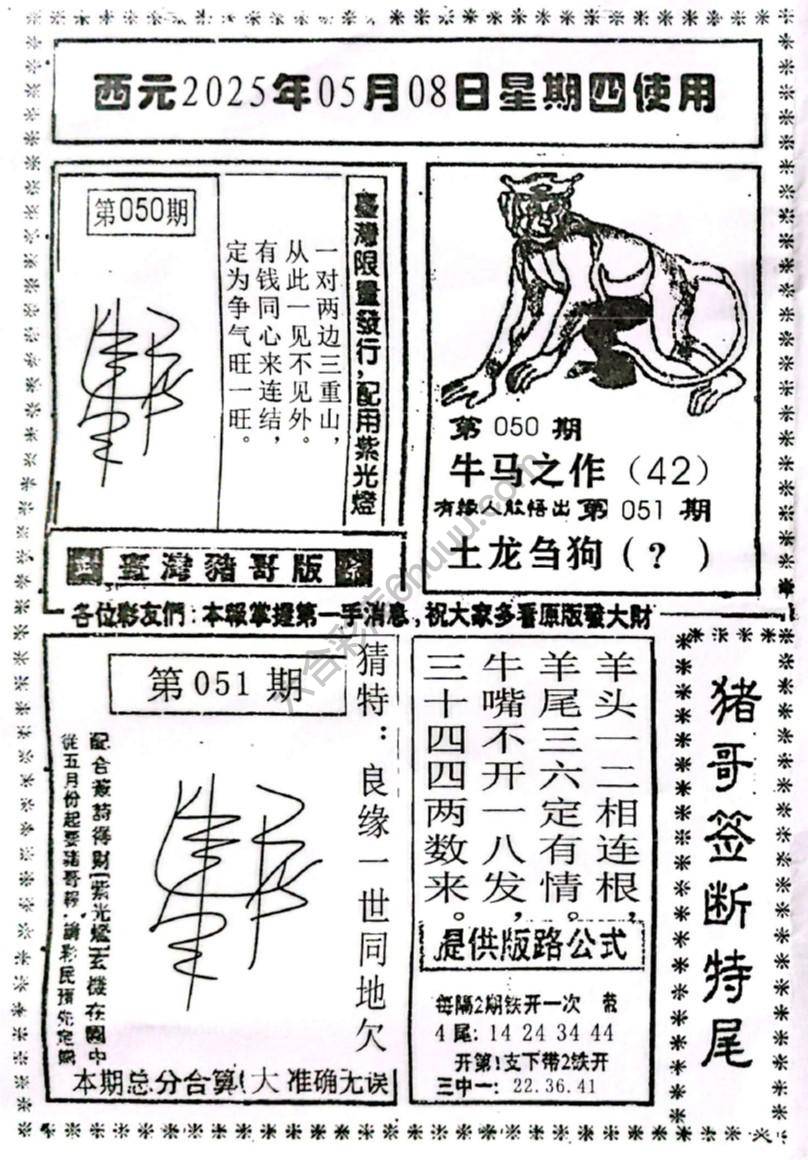 西元2025年05月08日星期四使用
第050期
一对两边三重山，
从此一见不见外。
有钱同心来连结，
定为争气旺一旺。
臺灣限量發行，配用紫光燈
第 050 期
牛马之作（42）
有缘人敢悟出 第 051 期
土龙刍狗（？）
臺灣豬哥版
各位彩友們：本報掌握第一手消息，祝大家多看原版發大財
第 051 期
猜特：良缘一世同地欠
從五月份起要豬哥報，請彩民預先定購
本期总分合算（大 准确无误
羊头一二相连根，
羊尾三六定有情。
牛嘴不开一八发，
三十四四两数来。
提供版路公式
每隔2期铁开一次
4尾：14 24 34 44
开第1支下带2铁开
三中一：22.36.41
猪哥签断特尾
六合彩库6huuu.com